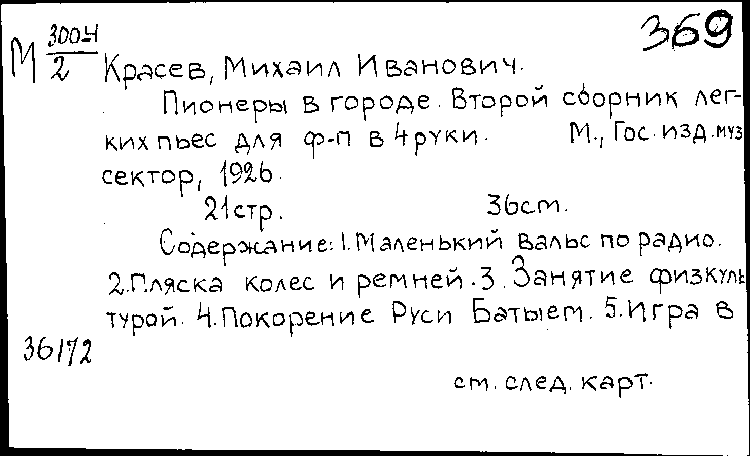 369
М 3004/2
Красев, Михаил Иванович.
Пионеры в городе. Второй сборник лег-
ких пьес для ф-п в 4 руки. М., Гос. изд. муз
сектор, 1926.
21 стр. 36 см.
Содержание: 1. Маленький вальс по радио.
2. Пляска колес и ремней. 3. Занятие физкуль
турой. 4. Покорение Руси Батыем. 5. Игра в
36172
см. след. карт.